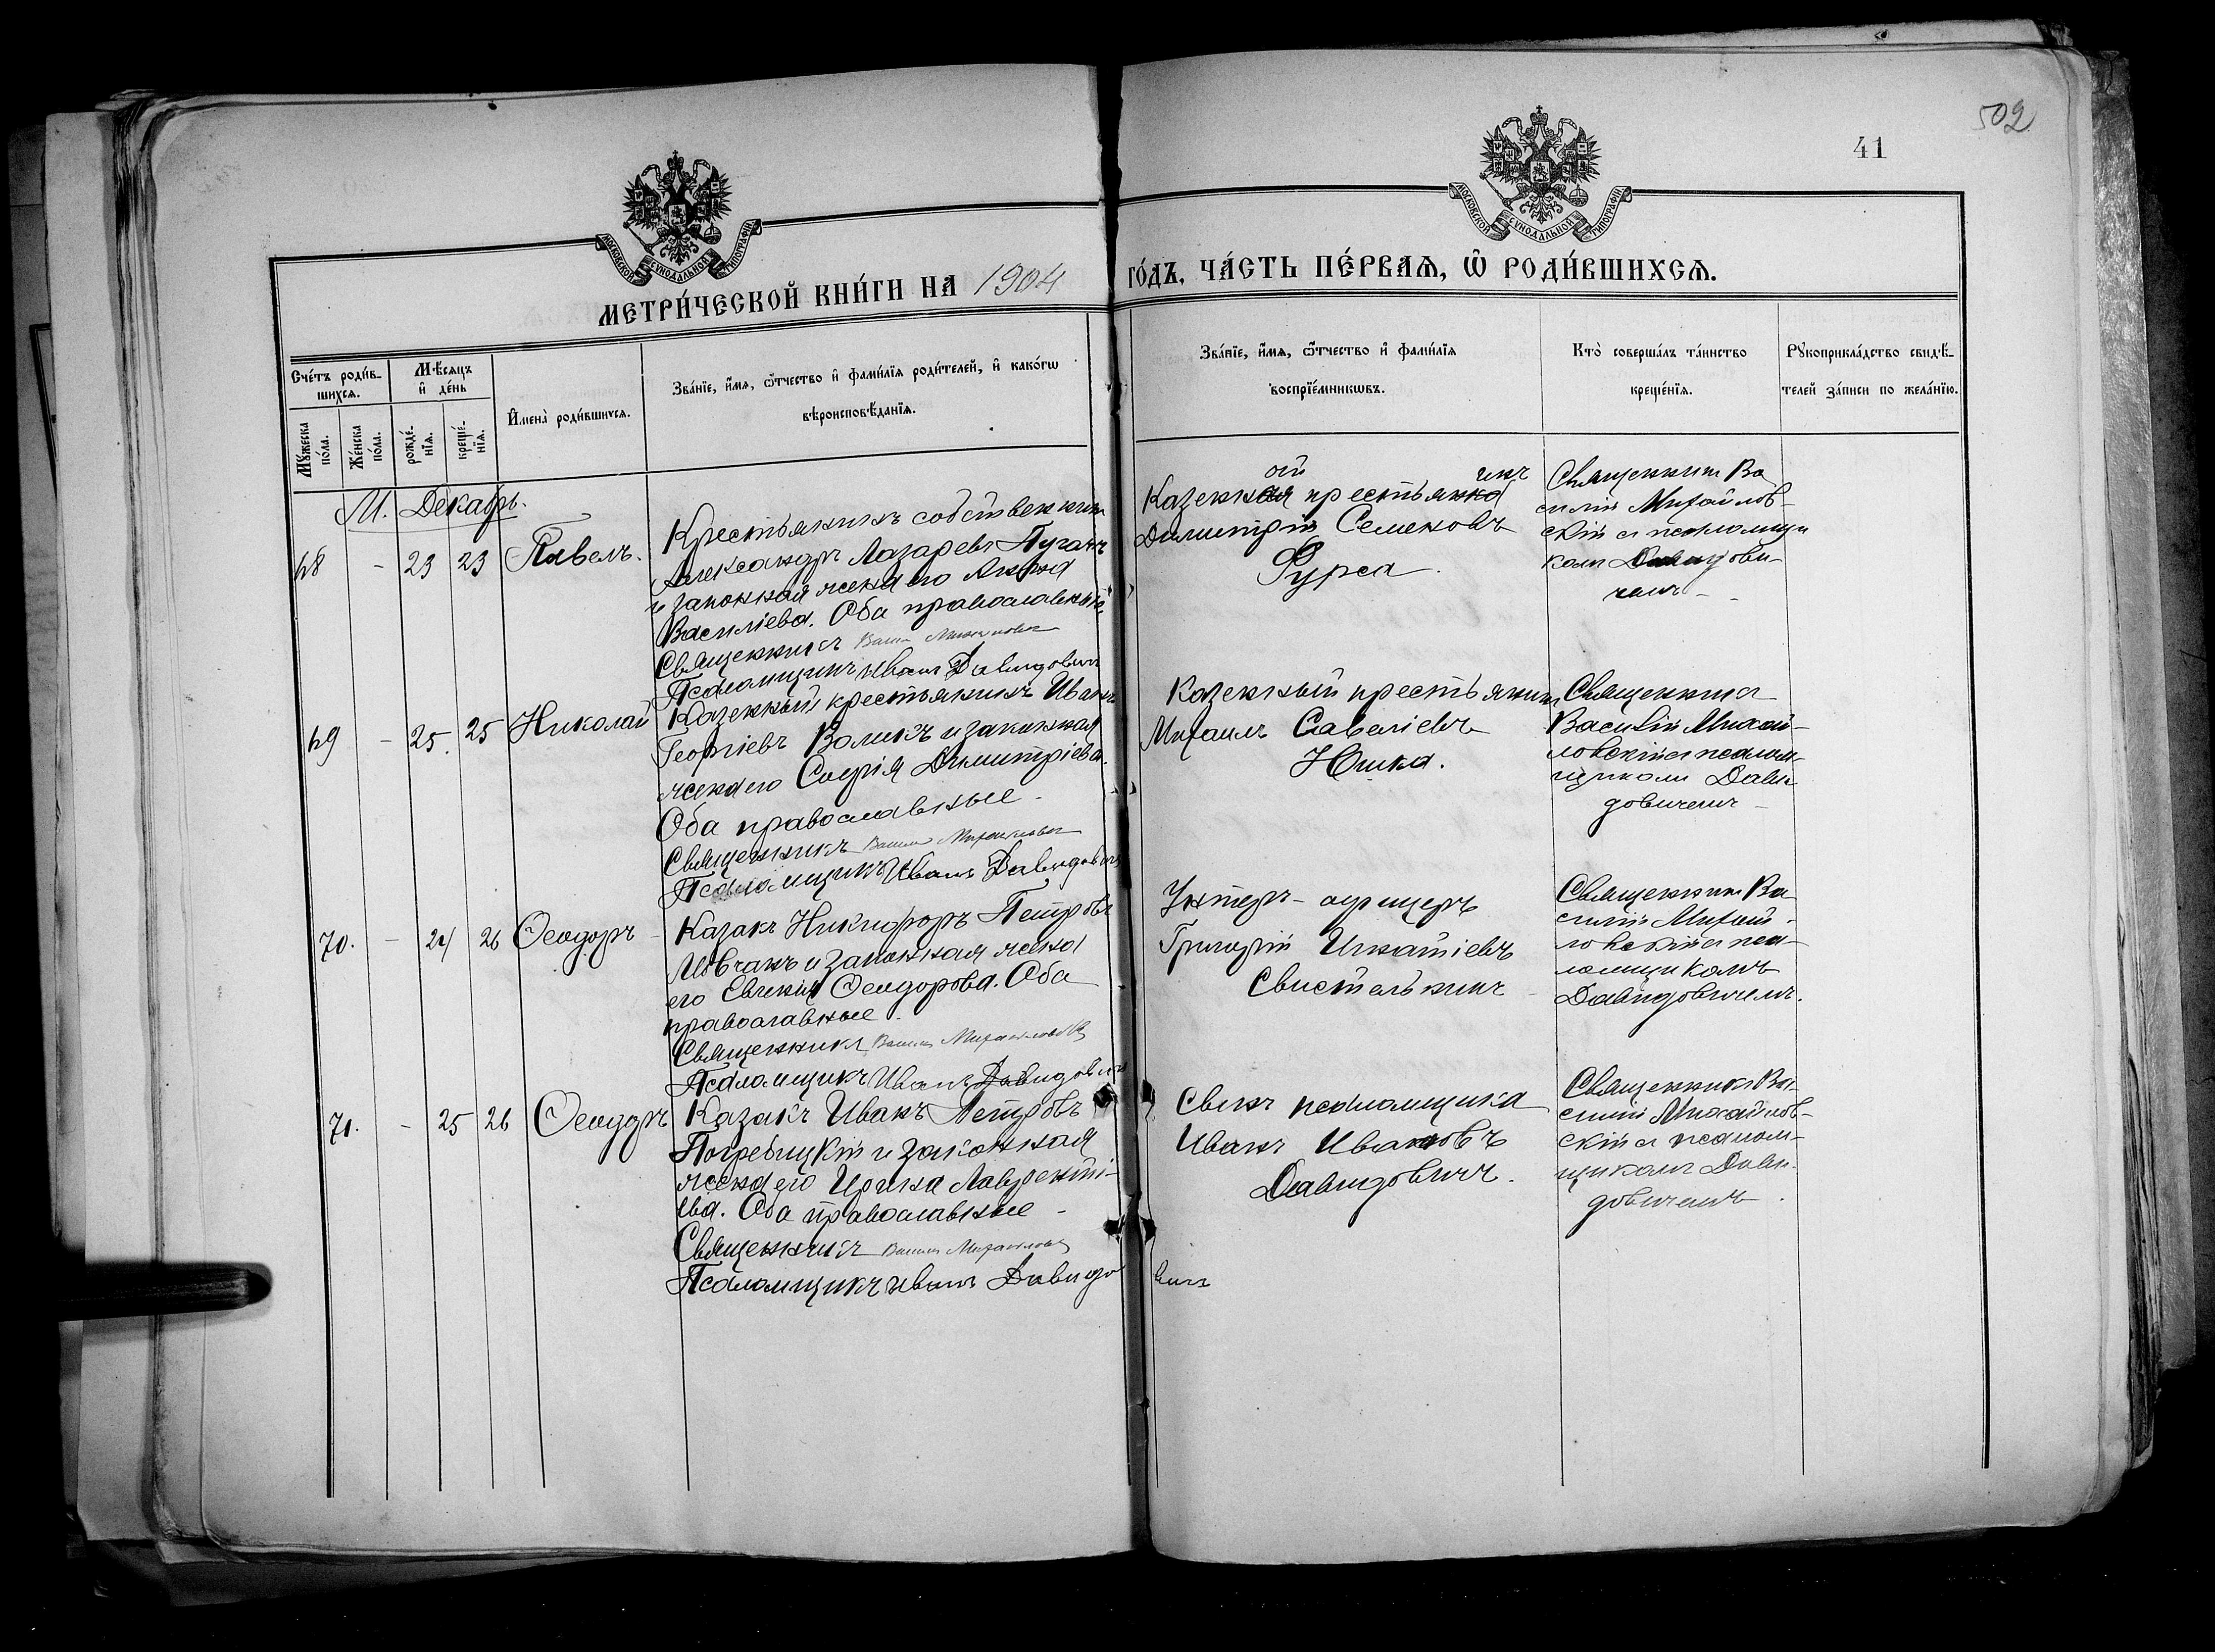 502
41
МОСКОВСКОЙ СѴНОДАЛЬНОЙ ТИПОГРАФІИ
МОСКОВСКОЙ СѴНОДАЛЬНОЙ ТИПОГРАФІИ
МЕТРИ́ЧЕСКОЙ КНИ́ГИ НА 1904 ГО́ДЪ, ЧА́СТЬ ПЕ́РВАѦ, Ѡ҆ РОДИ́ВШИХСѦ.
Сче́тъ роди́в-
шихсѧ.
Мꙋ́жеска
по́ла.
Же́нска
по́ла.
Мѣ́сѧцъ
и҆ де́нь
рожде́-
нїѧ.
креще́-
нїѧ.
И҆мена̀ роди́вшихсѧ.
Зва́нїе, и҆́мѧ, ѻ҆́тчество и҆ фами́лїѧ роди́телей, и҆ како́гѡ
вѣроисповѣ́данїѧ.
Зва́нїе, и҆́мѧ, ѻ҆́тчество и҆ фами́лїѧ
воспрїе́мникѡвъ.
Кто̀ соверша́лъ та́инство
креще́нїѧ.
Рꙋкоприкла́дство свидѣ́-
телей за́писи по жела́нїю.
М. Декабрь.
68 - 23 23 Павелъ.
Крестьянинъ собственникъ
Александръ Лазаревъ Пугачъ
и законная жена его Анна
Василіева. Оба православные
Священникъ
Псаломщикъ Иванъ Давидовичъ
Казенный крестьянинъ
Димитрій Семеновъ
Фурса.
Священникъ Ва
силій Михайлов-
скій съ псаломщи
комъ Давидови-
чемъ -
69 - 25. 25 Николай
Казенный крестьянинъ Иванъ
Георгіевъ Воликъ и законная
жена его Софія Димитріева.
Оба православные -
Священникъ
Псаломщикъ Иванъ Давидовичъ
Казенный крестьянинъ
Михаилъ Савеліевъ
Юшка.
Священникъ
Василій Михай-
ловскій съ псалом-
щикомъ Дави
довичемъ -
70. - 24 26 Ѳеодоръ
Казакъ Никифоръ Петровъ
Мовчанъ и законная жена
его Евгенія Ѳеодорова. Оба
православные.
Священникъ
Псаломщикъ Иванъ Давидовичъ
Унтеръ-офицеръ
Григорій Игнатіевъ
Свистельникъ
Священникъ Ва
силій Михай-
ловскій съ пса-
ломщикомъ
Давидовичемъ.
71. - 25 26 Ѳеодоръ
Казакъ Иванъ Петровъ
Погребицкій и законная
жена его Ирина Лаврентіе-
ва. Оба православные -
Священникъ
Псаломщикъ Иванъ Давидовичъ
Сынъ псаломщика
Иванъ Ивановъ
Давидовичъ.
Священникъ Ва-
силій Михайлов-
скій съ псалом-
щикомъ Дави-
довичемъ.